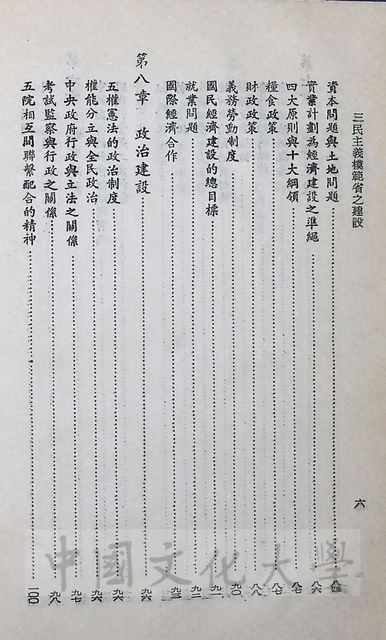 三民主義模範省之建設
六
資本問題與土地問題
實業計劃為經濟建設之準繩 八六
四大原則與十大綱領 八七
糧食政策 八七
財政政策 八八
義務勞動制度 九〇
國民經濟建設的總目標 九一
就業問題 九二
國際經濟合作
第八章 政治建設 九六
五權憲法的政治制度 九六
權能分立與全民政治 九六
中央政府行政與立法之關係 九七
考試監察與行政之關係 九八
五院相互間聯繫配合的精神 一〇〇
中國文化大學